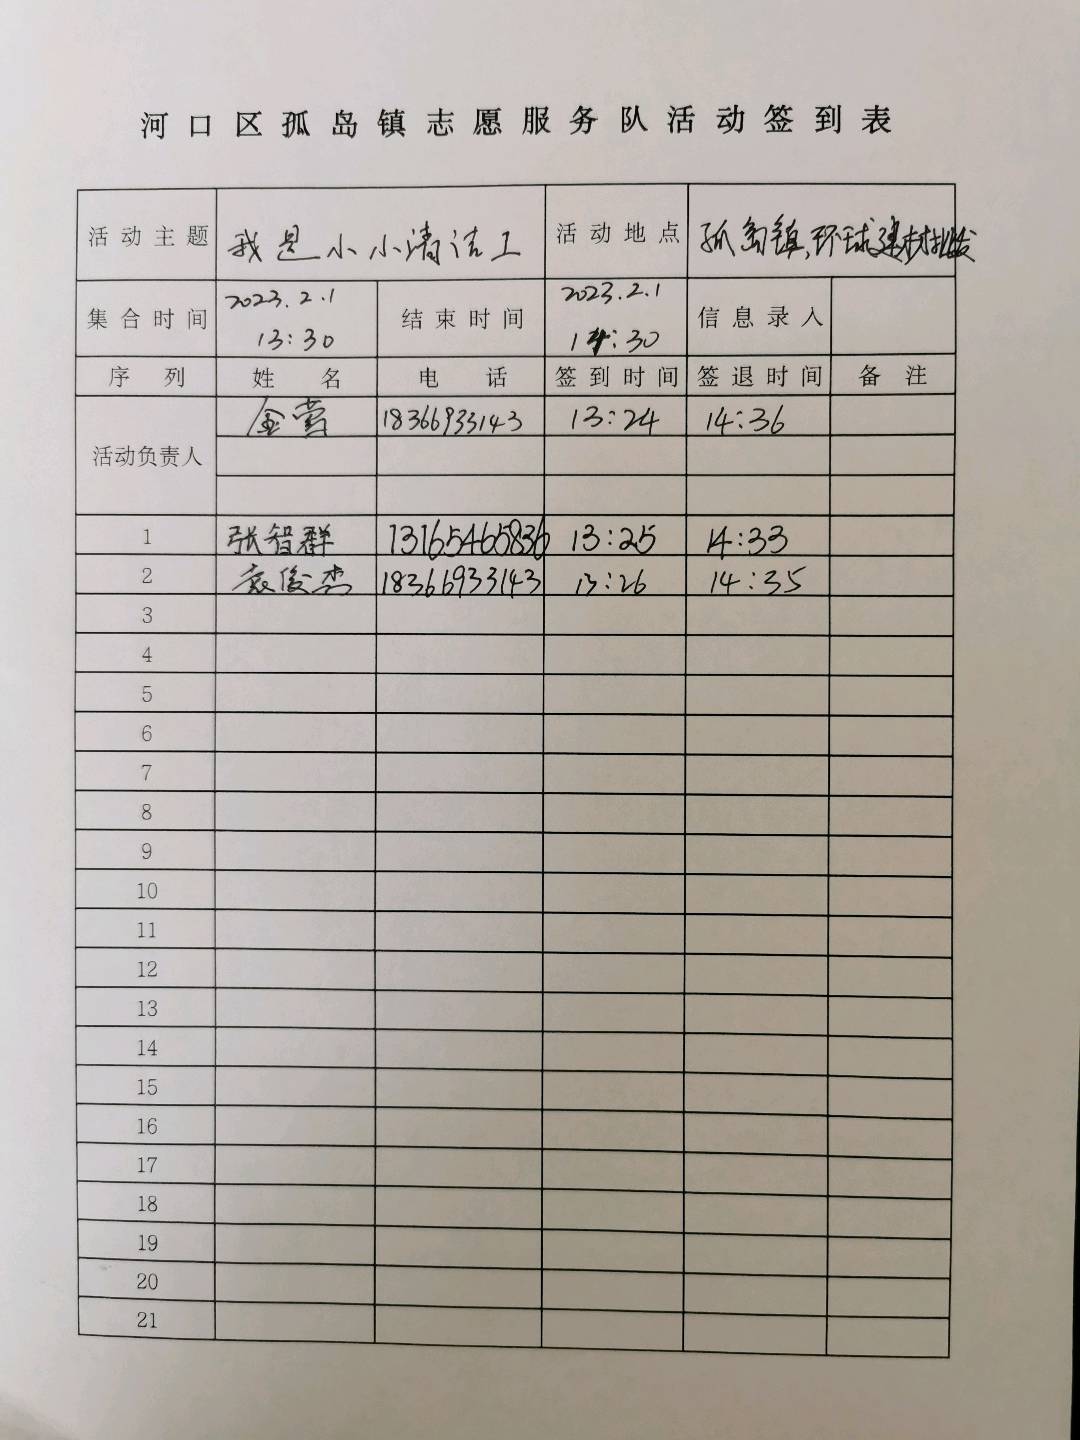 河口区孤岛镇志愿服务队活动签到表
活动主题 我是小小清洁工 活动地点 孤岛镇,环球建材批发
集合时间 2023.2.1 13:30 结束时间 2023.2.1 14:30 信息录入
序列 姓名 电话 签到时间 签退时间 备注
活动负责人 金莹 18366933143 13:24 14:36
1 张智群 13165465836 13:25 14:33
2 袁俊杰 18366933143 13:26 14:35
3
4
5
6
7
8
9
10
11
12
13
14
15
16
17
18
19
20
21